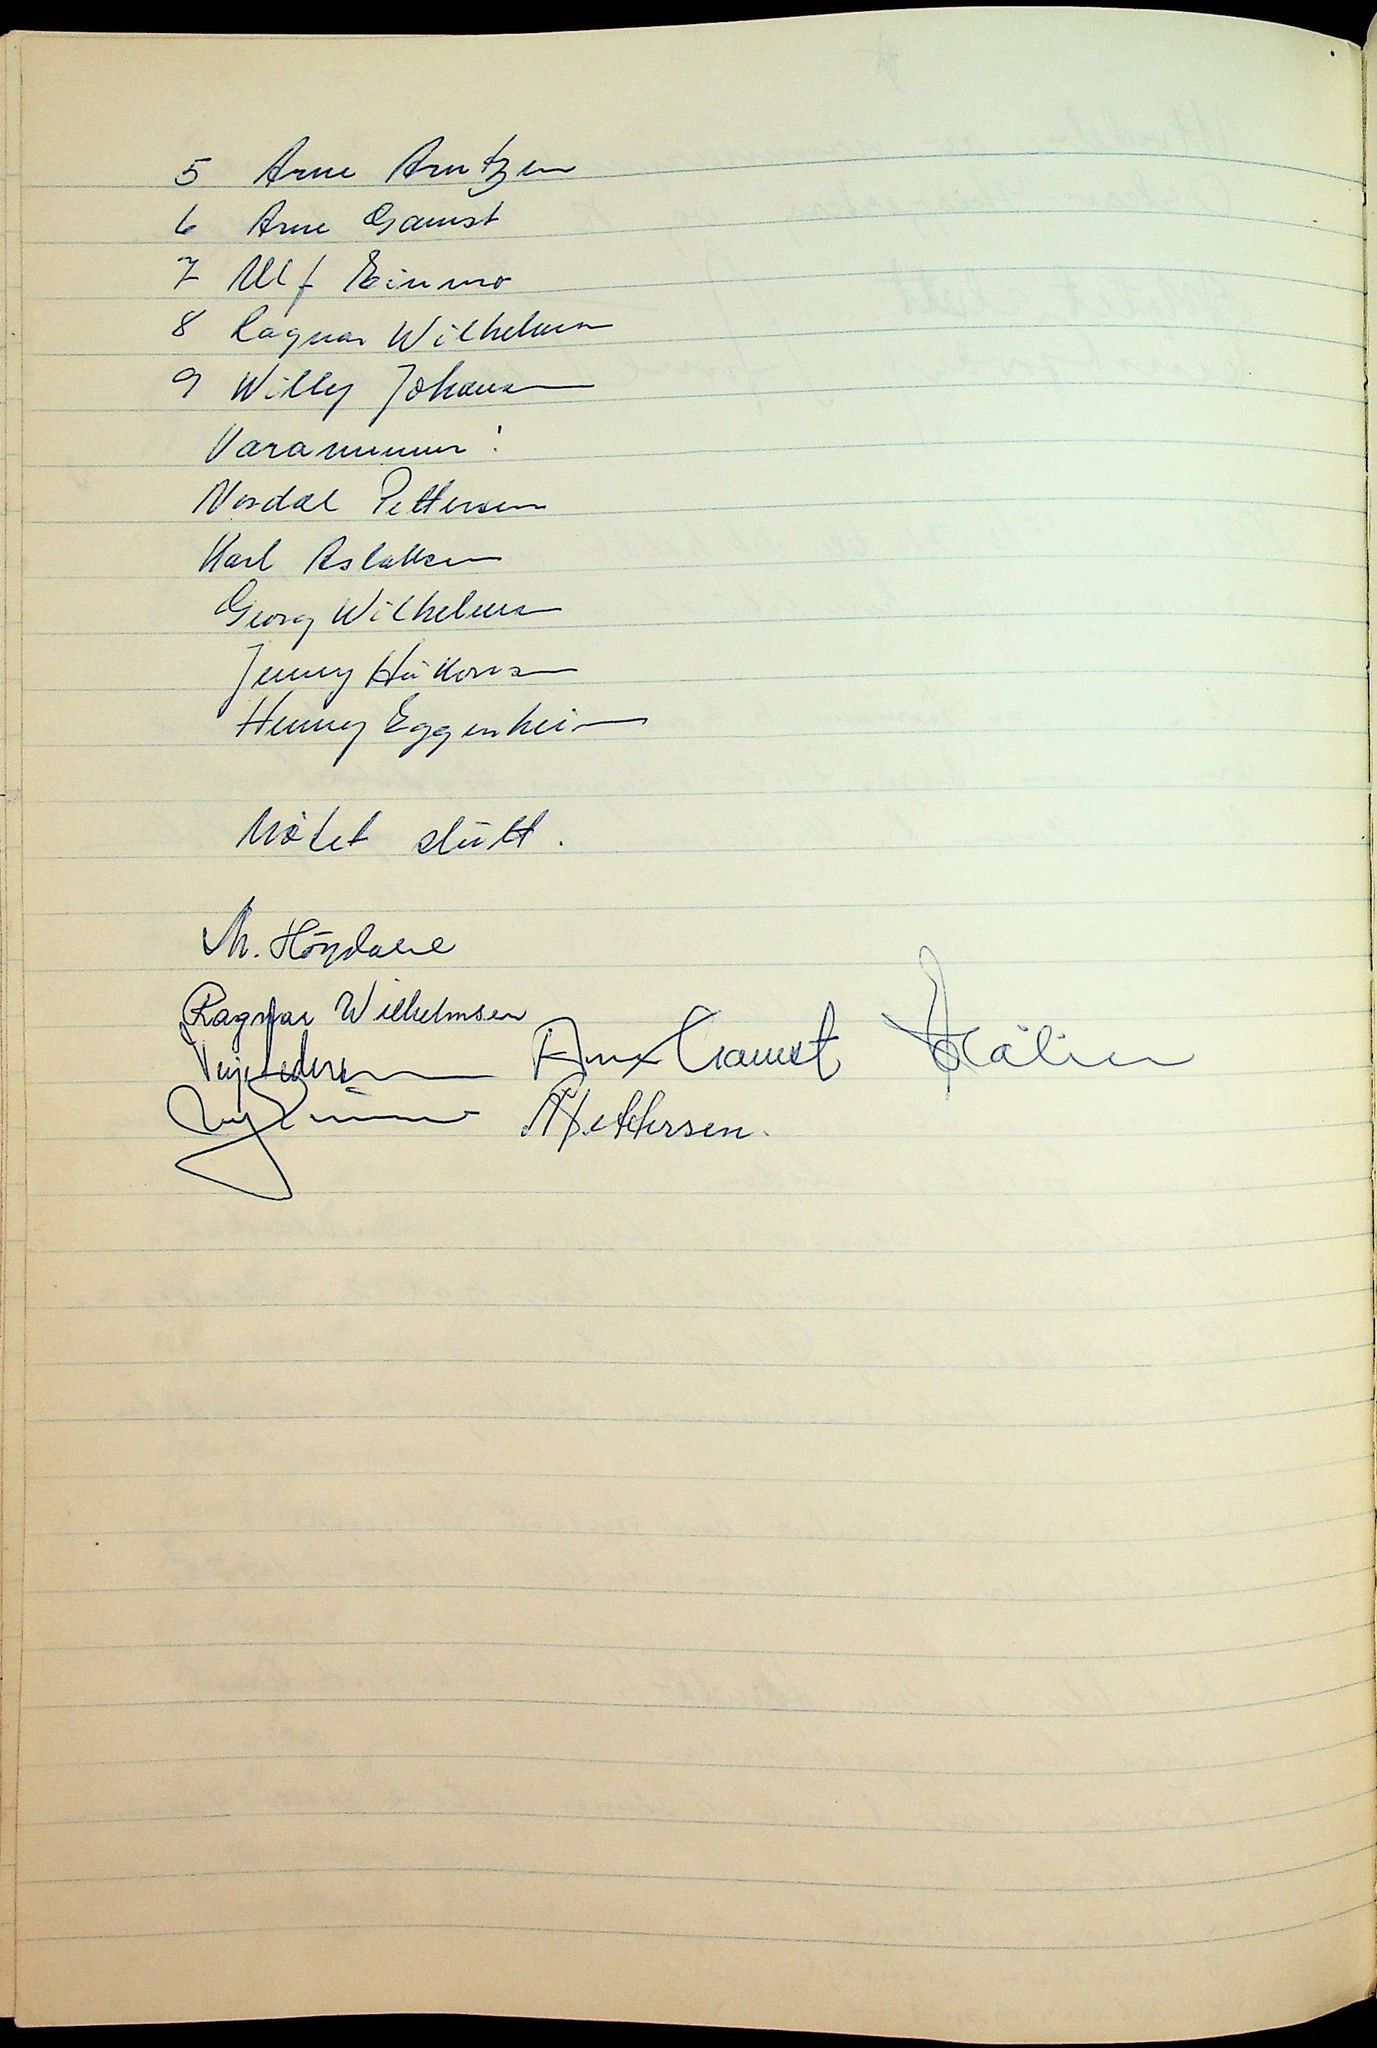 5 Arne Arntzen
6 Arne Gamst
7 Ulf Einmo
8 Ragnar Wilhelmsen
9 Willy Johansen
Varamenn:
Nordal Pettersen
Karl Aslaksen
Georg Wilhelmsen
Jenny Håkonsen
Henny Eggenheim
Møtet slutt.
M. Høydahl
Ragnar Wilhelmsen
Arne Gamst
N Pettersen.